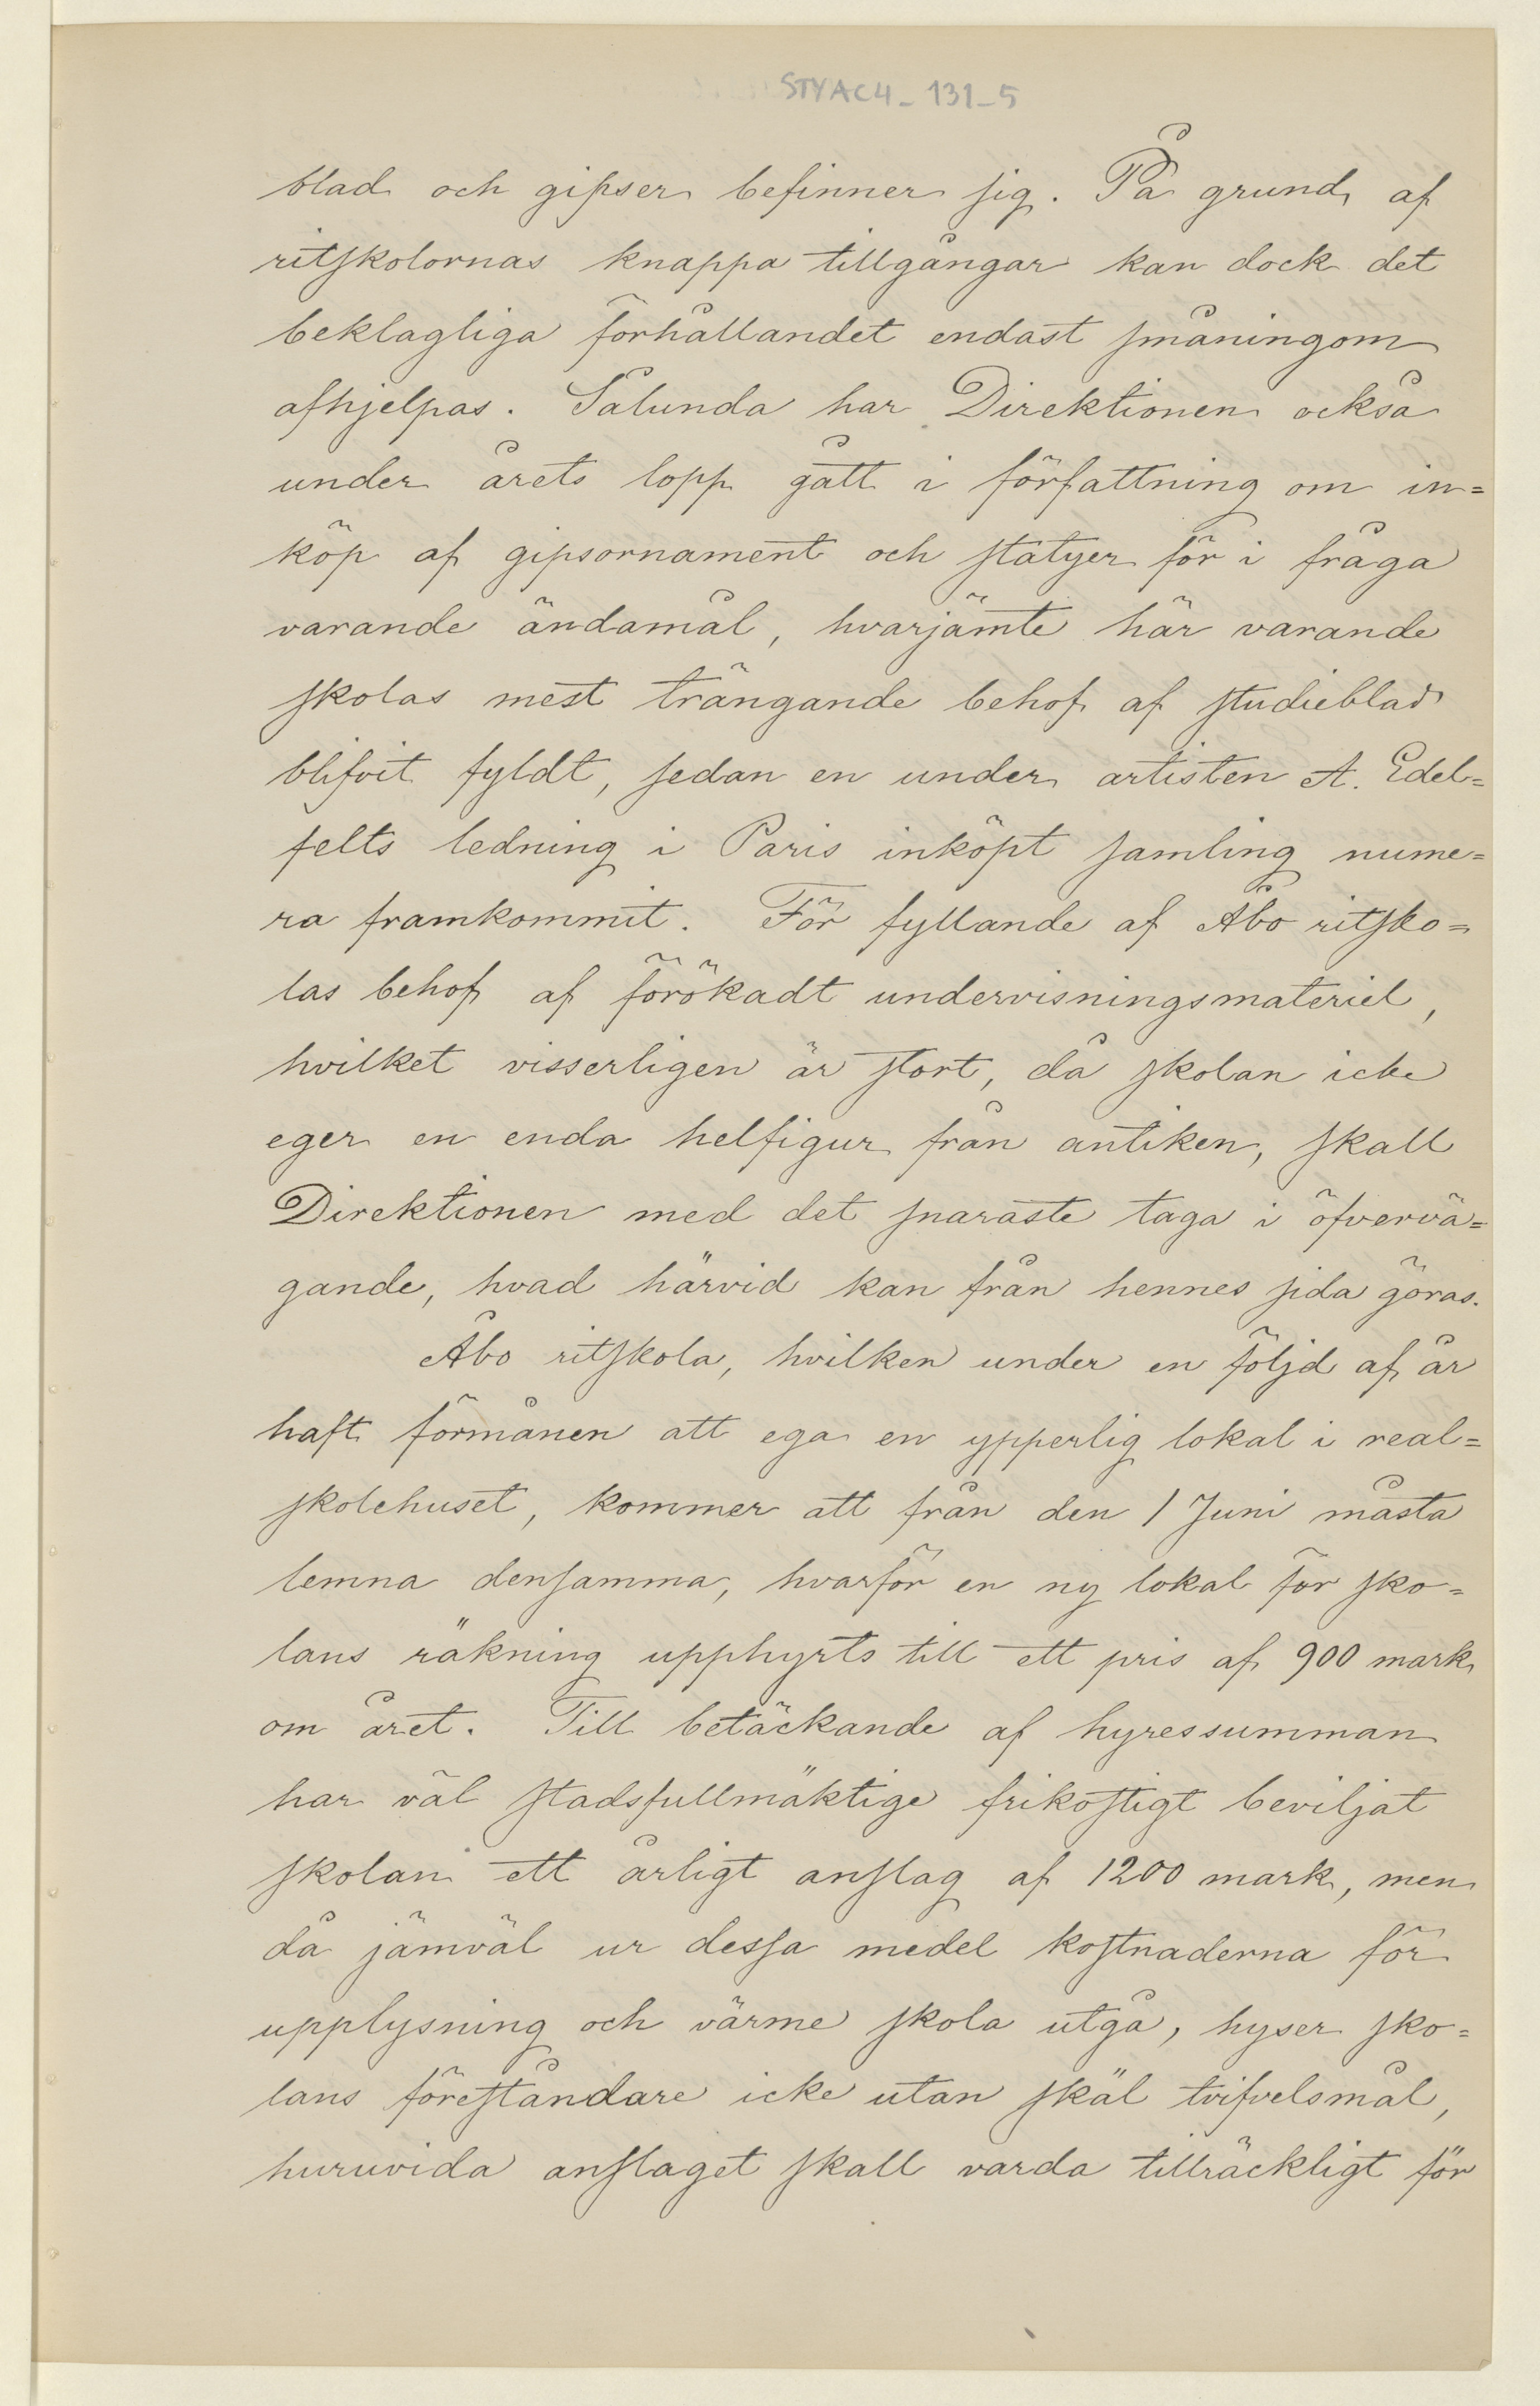 STYAC4_131_5
blad och gipser befinner sig. På grund af
ritskolornas knappa tillgångar kan dock det
beklagliga förhållandet endast småningom
afhjelpas. Sålunda har Direktionen också
under årets lopp gått i författning om in=
köp af gipsornament och statyer för i fråga
varande ändamål, hvarjämte här varande
skolas mest trängande behof af studieblad
blifvit fyldt, sedan en under artisten A. Edel=
felts ledning i Paris inköpt samling nume=
ra framkommit. För fyllande af Åbo ritsko=
las behof af förökadt undervisningsmateriel,
hvilket visserligen är stort, då skolan icke
eger en enda helfigur från antiken, skall
Direktionen med det snaraste taga i öfvervä=
gande, hvad härvid kan från hennes sida göras.
Åbo ritskola, hvilken under en följd af år
haft förmånen att ega en ypperlig lokal i real=
skolehuset, kommer att från den 1 Juni måsta
lemna densamma, hvarför en ny lokal för sko=
lans räkning upphyrts till ett pris af 900 mark
om året. Till betäckande af hyressumman
har väl stadsfullmäktige frikostigt beviljat
skolan ett årligt anslag af 1200 mark, men
då jämväl ur dessa medel kostnaderna för
upplysning och värme skola utgå, hyser sko=
lans föreståndare icke utan skäl tvifvelsmål,
huruvida anslaget skall varda tillräckligt för